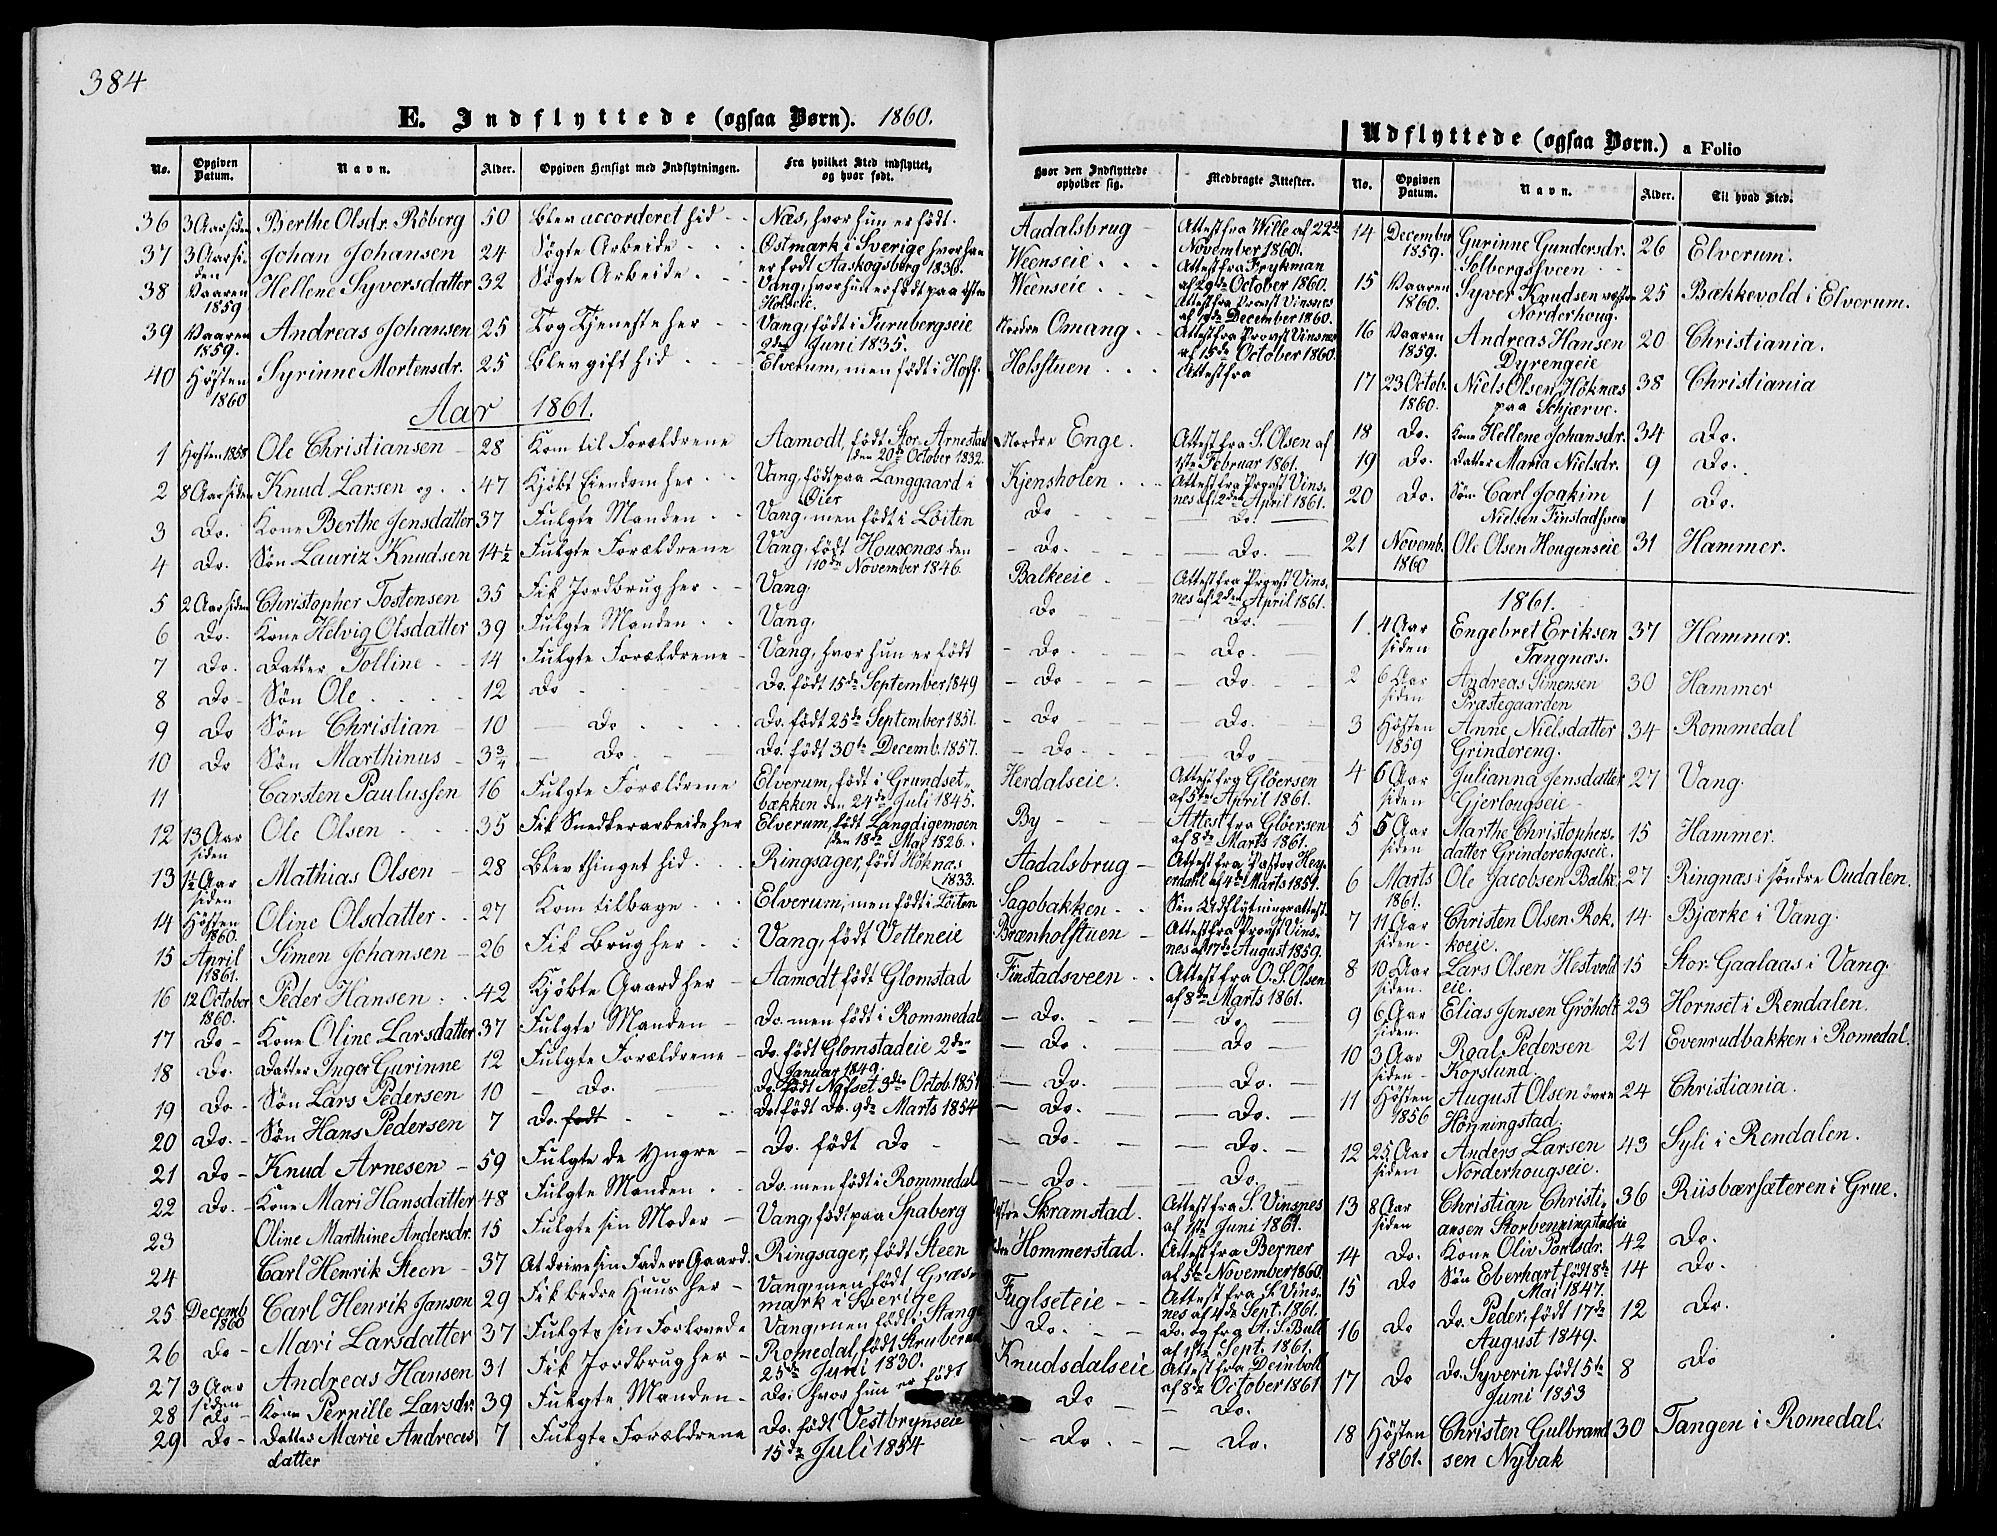 384
E. Indflyttede (ogsaa Børn). 1860.
No. Opgiven Datum. Navn. Alder. Opgiven Hensigt med Indflytningen. Fra hvilket Sted indflyttet, og hvor født. Hvor den Indflyttede opholder sig. Medbragte Attester.
36 3 Aar siden Berthe Olsdr. Röberg 50 Blev accorderet hid Næs, hvor hun er födt. Aadalsbrug Attest fra Wille af 22de November 1860.
37 3 Aar siden Johan Johansen 24 Sögte Arbeide Östmark i Sverige hvor han er født Aaskogsberg 1836. Weenseie Attest fra Frykman af 29de October 1860.
38 Vaaren 1859 Hellene Syversdatter 32 Sögte Arbeide Vang, hvor hun er født paa Holseie. Weenseie Attest fra Provst Vinsnes December 1860.
39 Vaaren 1859. Andreas Johansen 25 Tog Tjeneste her Vang, født i Furubergseie 2den Juni 1835. Nordre Omang Attest fra Provst Vinsnes af 15de October 1860.
40 Hösten 1860 Syrinne Mortensdr. 25 Blev gift hid Elverum, men født i Hoff. Holsstuen Attest fra
Aar 1861.
1 Hösten 1858 Ole Christiansen 28 Kom til Forældrene Aamodt, født Stor Arnestad den 20de October 1832. Nordre Enge. Attest fra S. Olsen af 1ste Februar 1861.
2 8 Aar siden Knud Larsen og 47 Kjöbt Eiendom her Vang, født paa Langgaard i Öier Kjensholen Attest fra Provst Vinsnes af 2den April 1861.
3 Do. Kone Berthe Jensdatter 37 Fulgte Manden Vang, men født i Löiten Do Do.
4 Do. Sön Lauriz Knudsen 14½ Fulgte Forældrene Vang, født Housenæs den 10de November 1846. Do. Do.
5 2 Aar siden Christopher Tostensen 35 Fik Jordbrug her Vang, Balkeeie Attest fra Provst Vinsnes af 2den April 1861.
6 Do. Kone Helvig Olsdatter 39 Fulgte Manden Vang, Do Do.
7 Do. Datter Tolline 14 Fulgte Forældrene Vang, hvor hun er født Do. Do.
8 Do Sön Ole 12 Do Do. født 15de September 1849 Do Do
9 Do Sön Christian 10 Do. Do. født 25de September 1851. Do Do.
10 Do Sön Marthinus 3¾ Do. Do. født 30te Decemb. 1857. Do. Do
11 Carsten Paulussen 16 Fulgte Forældrene Elverum, født i Grundsetbækken den 24de Juli 1845. Herdalseie. Attest fra Glöersen af 5te April 1861.
12 13 Aar siden Ole Olsen 35 Fik Snedkerarbeide her Elverum, født Langdigemoen den 18de Mai 1826. By Attest fra Glöersen af 8de Marts 1861.
13 1½ Aar siden Mathias Olsen 28 Blev thinget hid. Ringsager, født Höknæs 1833. Aadalsbrug Attest fra Pastor Heyerdahl af 4de Marts 1851.
14 Hösten 1860. Oline Olsdatter 27 Kom tilbage Elverum, men født i Löiten Sagobakken Sin Udflytningsattest.
15 April 1861. Simen Johansen 26 Fik Brug her Vang, født Vetteneie Brænholstuen Attest fra Provst Vinsnes af 17de August 1859.
16 12 October 1860. Peder Hansen 42 Kjöbte Gaard her Aamodt født Glomstad Finstadsveen Attest fra O. S. Olsen af 8de Marts 1861.
17 Do Kone Oline Larsdatter 37 Fulgte Manden Do. men født i Rommedal Do. Do.
18 Do. Datter Inger Gurinne 12 Fulgte Forældrene Do. født Glomstadeie 2den Januar 1849. Do. Do
19 Do Sön Lars Pedersen 10 Do. Do. født Nysset 3de Octob. 1851 Do. Do.
20 Do. Sön Hans Pedersen 7 Do. født Do. født Do. 9de Marts 1854 Do. Do.
21 Do Knud Arnesen 59 Fulgte de Yngre Do. født Do Do. Do.
22 Do. Kone Mari Hansdatter 48 Fulgte Manden Do. men født i Rommedal Do. Do.
23 Oline Marthine Andersdr. 15 Fulgte sin Moder Vang, født paa Spaberg Skramstad. Attest fra S. Vinsnes af 1ste Juni 1861.
24 Carl Henrik Steen 37 At drive sin Faders Gaard. Ringsager, født Steen Hommerstad. Attest fra Berner af 5te November 1860.
25 Decemb 1860 Carl Henrik Janson 29 Fik bedre Huus her Vang, men født Græsmark i Sverige Fuglseteie Attest fra S. Vinsnes af 4de Sept. 1861.
26 Do Mari Larsdatter 37 Fulgte sin Forlovede Vang, men født i Stange Do. Do. og fra A. S. Bull af 1ste Sept. 1861.
27 3 Aar siden Andreas Hansen 31 Fik Jordbrug her Romedal, født Struberud 25de Juni 1830. Knudsdalseie Attest fra Deinboll af 8de October 1861
28 Do Kone Pernille Larsdr. 39 Fulgte Manden Do. hvor hun er født Do Do.
29 Do Datter Marie Andreasdatter 7 Fulgte Forældrene Do. født Vestbrynseie 15de Juli 1854 Do. Do.
Udflyttede (ogsaa Børn.) a Folio
No. Opgiven Datum. Navn. Alder. Til hvad Sted.
14 December 1859. Gurinne Gundersdr. Solbergsveen 26 Elverum.
15 Vaaren 1860. Syver Knudsen Norderhoug. 25 Bækkevold i Elverum.
16 Vaaren 1859. Andreas Hansen Dyrengeie 20 Christiania.
17 23 Octob. 1860. Niels Olsen Höknæs paa Schjærve. 38 Christiania
18 Do. Kone Hellene Johansdr. 34 Do.
19 Do. Datter Maria Nielsdr. 9 Do.
20 Do. Sön Carl Joakim Nielsen Finstadsveen 1 Do.
21 Novemb. 1860 Ole Olsen Hougenseie 31 Hammer.
1861.
1. 4 Aar siden Engebret Eriksen Tangnæs. 37 Hammer.
2 6 Aar siden Andreas Simensen Præstegaarden 30 Hammer
3 Hösten 1859 Anne Nielsdatter Grindereng. 34 Rommedal
4 6 Aar siden Julianna Jensdatter Gjerlougseie 27 Vang.
5 5 Aar siden Marthe Christophersdatter Grinderengseie. 15 Hammer.
6 Marts 1861. Ole Jacobsen Balke 27 Ringnæs i söndre Oudalen.
7 11 Aar siden Christen Olsen Rokkoeie. 14 Bjærke i Vang.
8 10 Aar siden. Lars Olsen Hestvoldeie. 15 Stor-Gaalaas i Vang.
9 6 Aar siden. Elias Jensen Gröholt 23 Hornset i Rendalen.
10 3 Aar siden Roal Pedersen Korslund. 21 Evenrudbakken i Romedal.
11 Hösten 1856 August Olsen övre Hörningstad. 24 Christiania.
12 25 Aar siden Anders Larsen Norderhougseie. 43 Syli i Rendalen.
13 8 Aar siden Christian Christiansen Storbenningstadeie 36 Riisbærsæteren i Grue.
14 Do. Kone Oliv Poulsdr. 42 Do.
15 Do Sön Eberhart, født 8de Mai 1847. 14 Do.
16 Do Do. Peder, født 17de August 1849. 12 Do.
17 Do Do. Syverin født 5te Juni 1853 8 Do
18 Hösten 1861. Christen Gulbrandsen Nybak 30 Tangen i Romedal.